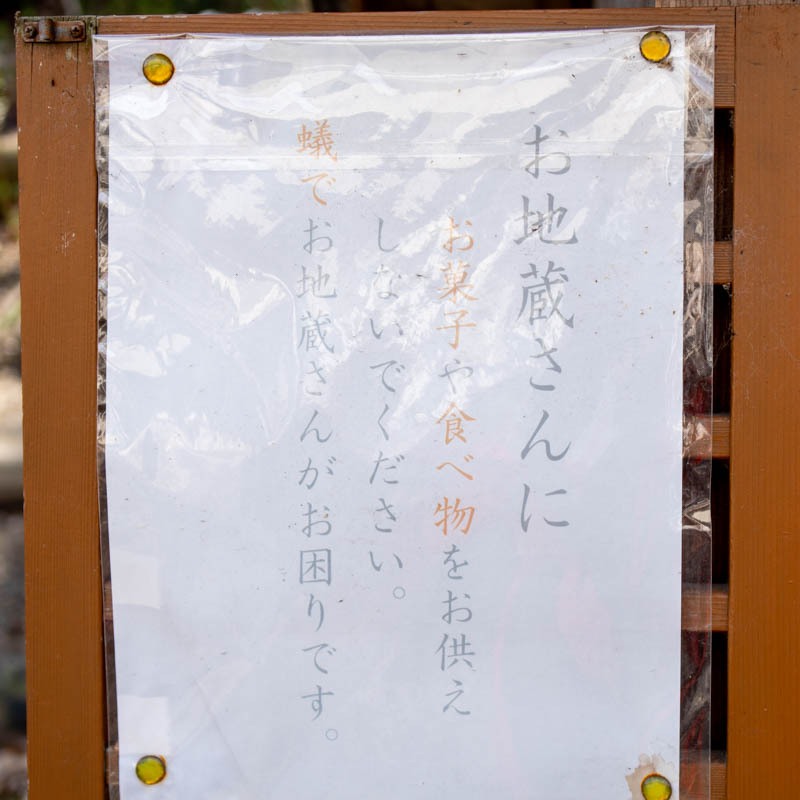 お地蔵さんに
お菓子や食べ物をお供え
しないでください。
蟻でお地蔵さんがお困りです。